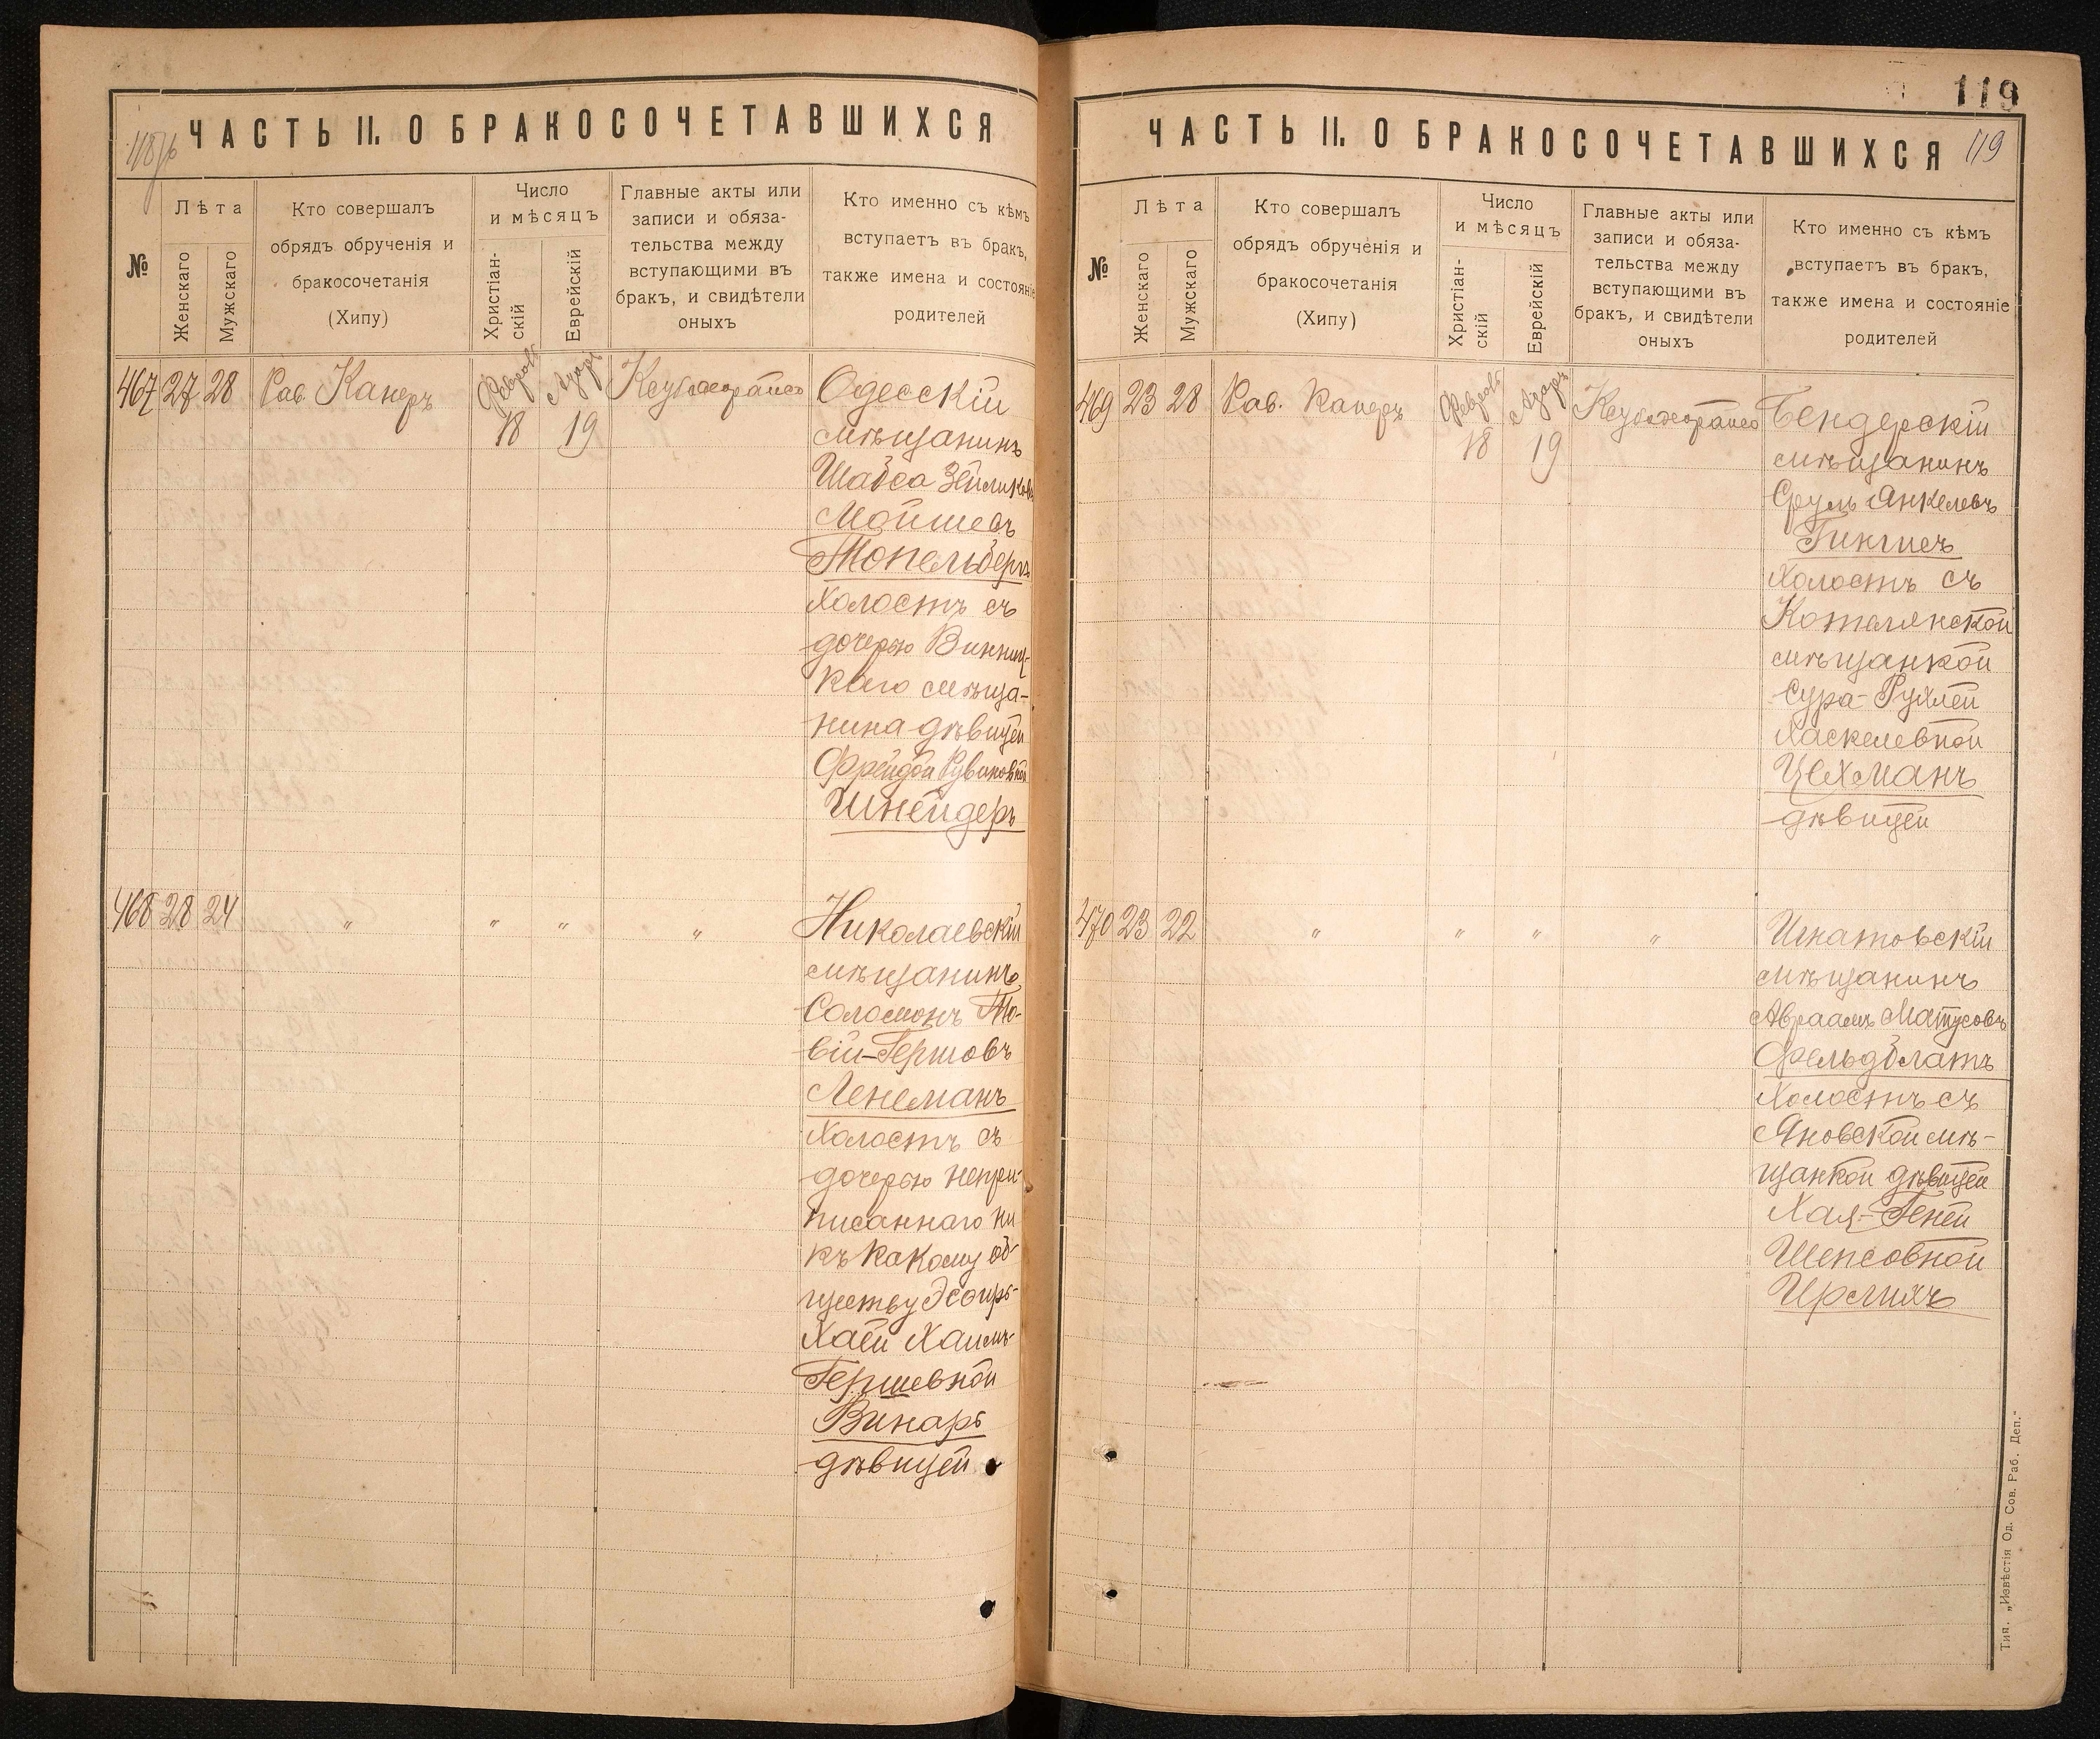 118 об
ЧАСТЬ II. О БРАКОСОЧЕТАВШИХСЯ
№
Лѣта
Женскаго
Мужскаго
Кто совершалъ
обрядъ обрученія и
бракосочетанія
(Хипу)
Число
и мѣсяцъ
Христіан-
скій
Еврейскій
Главные акты или
записи и обяза-
тельства между
вступающими въ
бракъ, и свидѣтели
оныхъ
Кто именно съ кѣмъ
вступаетъ въ бракъ,
также имена и состояніе
родителей
467 27 28 Рав. Канеръ
18 19
Одесскій
мѣщанинъ
Шабса Зейликовъ
Мойшевъ
Топельбергъ
холостъ съ
дочерью Винниц-
каго мѣща-
нина дѣвицей
Фрейдой Рувиновной
Шнейдеръ
468 28 24 " " " "
Николаевскій
мѣщанинъ
Соломонъ То-
вій-Гершовъ
Ленеманъ
холостъ съ
дочерью непри-
писаннаго ни
къ какому об-
ществу Эсѳирь-
Хаей Хаимъ-
Гершевной
Винаръ
дѣвицей
119
ЧАСТЬ II. О БРАКОСОЧЕТАВШИХСЯ
119
№
Лѣта
Женскаго
Мужскаго
Кто совершалъ
обрядъ обрученія и
бракосочетанія
(Хипу)
Число
и мѣсяцъ
Христіан-
скій
Еврейскій
Главные акты или
записи и обяза-
тельства между
вступающими въ
бракъ, и свидѣтели
оныхъ
Кто именно съ кѣмъ
вступаетъ въ бракъ,
также имена и состояніе
родителей
469 23 28 Рав. Канеръ
18 19
Бендерскій
мѣщанинъ
Сруль Янкелевъ
холостъ съ
мѣщанкой
Сура-Рухлей
Хаскелевной
Цехманъ
дѣвицей
470 23 22 " " " "
Игнатовскій
мѣщанинъ
Авраамъ Матусовъ
Фельдблатъ
холостъ съ
Яновской мѣ-
щанкой дѣвицей
Хая-Геней
Шепсовной
Ирлихъ
Тип. „Извѣстія Од. Сов. Раб. Деп.“